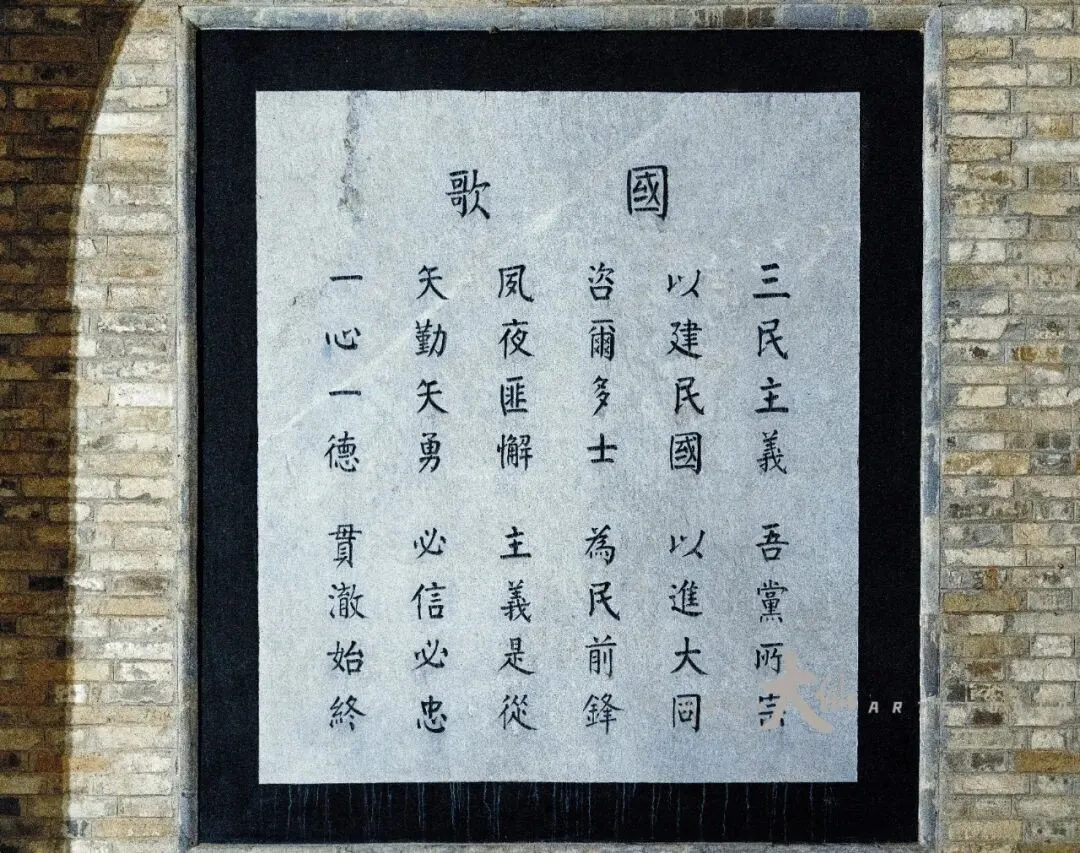 國歌
三民主義 吾黨所宗
以建民國 以進大同
咨爾多士 為民前鋒
夙夜匪懈 主義是從
矢勤矢勇 必信必忠
一心一德 貫澈始終
大
ART